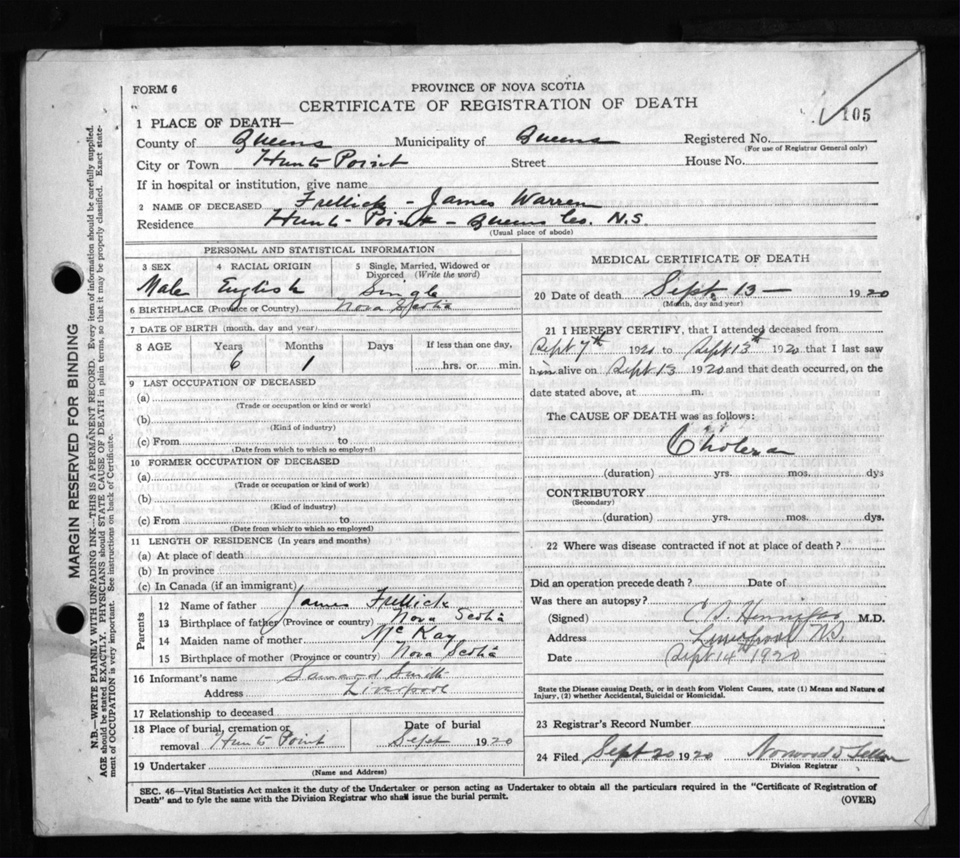 FORM 6
PROVINCE OF NOVA SCOTIA
CERTIFICATE OF REGISTRATION OF DEATH
105
1 PLACE OF DEATH—
County of Queens Municipality of Queens Registered No.
(For use of Registrar General only)
City or Town Hunts Point Street House No.
If in hospital or institution, give name
2 NAME OF DECEASED Frellick - James Warren
Residence Hunts-Point - Queens Co. N.S.
(Usual place of abode)
PERSONAL AND STATISTICAL INFORMATION
3 SEX 4 RACIAL ORIGIN 5 Single, Married, Widowed or
Divorced (Write the word)
Male English Single
6 BIRTHPLACE (Province or Country) Nova Scotia
7 DATE OF BIRTH (month, day and year)
8 AGE Years Months Days If less than one day,
6 1 hrs. or min.
9 LAST OCCUPATION OF DECEASED
(a)
(Trade or occupation or kind or work)
(b)
(Kind of industry)
(c) From to
(Date from which to which so employed)
10 FORMER OCCUPATION OF DECEASED
(a)
(Trade or occupation or kind of work)
(b)
(Kind of industry)
(c) From to
(Date from which to which so employed)
11 LENGTH OF RESIDENCE (In years and months)
(a) At place of death
(b) In province
(c) In Canada (if an immigrant)
Parents
12 Name of father James Frellick
13 Birthplace of father (Province or country) Nova Scotia
14 Maiden name of mother McKay
15 Birthplace of mother (Province or country) Nova Scotia
16 Informant's name Smith
Address Liverpool
17 Relationship to deceased
18 Place of burial, cremation or Date of burial
removal Hunts Point Sept 1920
19 Undertaker
(Name and Address)
MEDICAL CERTIFICATE OF DEATH
20 Date of death Sept. 13 — 1920
(Month, day and year)
21 I HEREBY CERTIFY, that I attended deceased from
Sept 7th 1920 to Sept 13th 1920 that I last saw
him alive on Sept 13 1920 and that death occurred, on the
date stated above, at m.
The CAUSE OF DEATH was as follows:
Cholera
(duration) yrs. mos. dys
CONTRIBUTORY
(Secondary)
(duration) yrs. mos. dys.
22 Where was disease contracted if not at place of death?
Did an operation precede death? Date of
Was there an autopsy?
(Signed) M.D.
Address Liverpool N.S.
Date Sept 14th 1920
State the Disease causing Death, or in death from Violent Causes, state (1) Means and Nature of
Injury, (2) whether Accidental, Suicidal or Homicidal.
23 Registrar's Record Number
24 Filed Sept 20 1920
Division Registrar
SEC. 46—Vital Statistics Act makes it the duty of the Undertaker or person acting as Undertaker to obtain all the particulars required in the "Certificate of Registration of
Death" and to fyle the same with the Division Registrar who shall issue the burial permit.
(OVER)
MARGIN RESERVED FOR BINDING
N.B.—WRITE PLAINLY WITH UNFADING INK—THIS IS A PERMANENT RECORD. Every item of information should be carefully supplied.
AGE should be stated EXACTLY. PHYSICIANS should STATE CAUSE OF DEATH in plain terms, so that it may be properly classified. Exact state-
ment of OCCUPATION is very important. See instructions on back of Certificate.